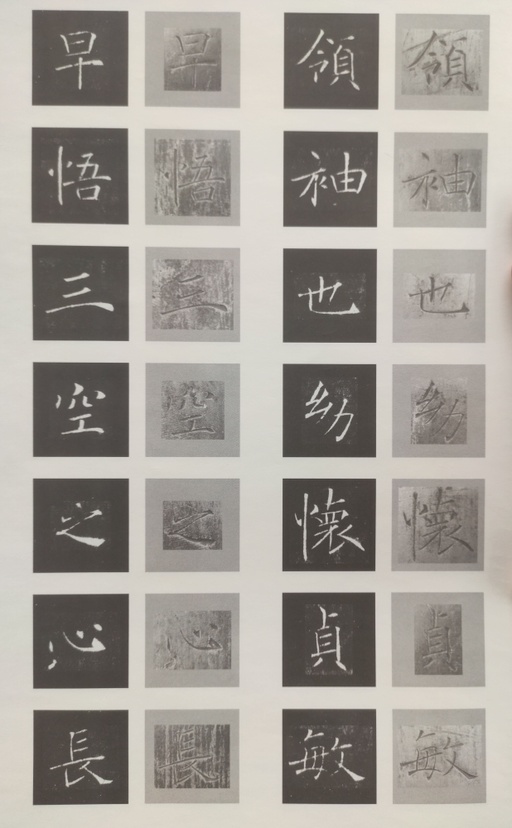 領袖也幼懷貞敏
領袖也幼懷貞敏
早悟三空之心長
早悟三空之心長